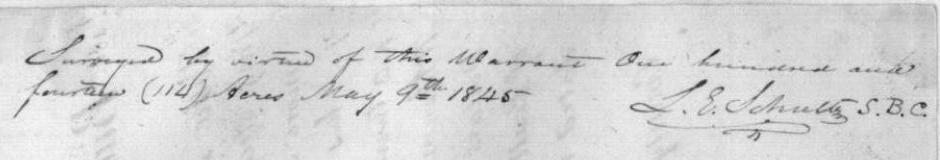 Surveyed by virtue of this Warrant One hundred and
fourteen (114) Acres May 9th 1845 L. E. Schultz S.B.C.